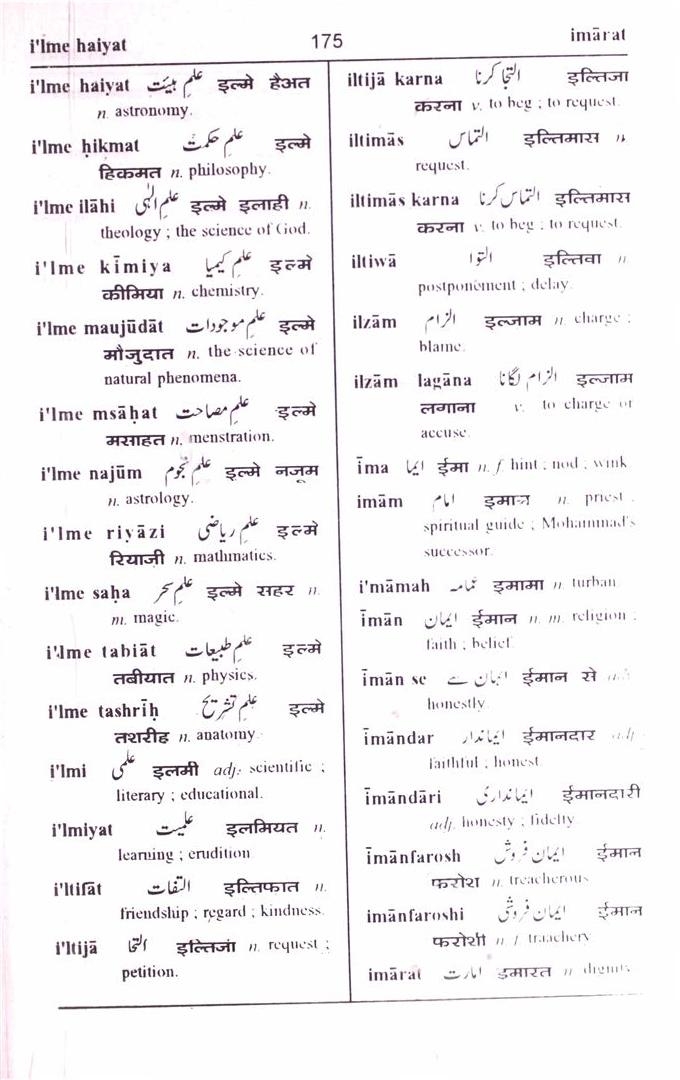 i'lme haiyat 175 imārat
i'lme haiyat علم ہیئت इल्मे हैअत
n. astronomy.
i'lme ḥikmat علم حکمت इल्मे
हिकमत n. philosophy.
i'lme ilāhi علم الٰہی इल्मे इलाही n.
theology ; the science of God.
i'lme kīmiya علم کیمیا इल्मे
कीमिया n. chemistry.
i'lme maujūdāt علم موجودات इल्मे
मौजुदात n. the science of
natural phenomena.
i'lme msāḥat علم مصاحت इल्मे
मसाहत n. menstration.
i'lme najūm علم نجوم इल्मे नजूम
n. astrology.
i'lme riyāzi علم ریاضی इल्मे
रियाजी n. mathmatics.
i'lme saḥa علم سحر इल्मे सहर n.
m. magic.
i'lme tabiāt علم طبیعات इल्मे
तबीयात n. physics.
i'lme tashrīḥ علم تشریح इल्मे
तशरीह n. anatomy.
i'lmi علمی इलमी adj. scientific ;
literary ; educational.
i'lmiyat علمیت इलमियत n.
learning ; erudition
i'ltifāt التفات इल्तिफात n.
friendship ; regard ; kindness.
i'ltijā التجا इल्तिजा n. request ;
petition.
iltijā karna التجا کرنا इल्तिजा
करना v. to beg ; to request.
iltimās التماس इल्तिमास n.
request.
iltimās karna التماس کرنا इल्तिमास
करना v. to beg ; to request.
iltiwā التوا इल्तिवा n.
postponement ; delay.
ilzām الزام इल्जाम n. charge ;
blame.
ilzām lagāna الزام لگانا इल्जाम
लगाना v. to charge or
accuse.
īma ایما ईमा n. f. hint ; nod ; wink
imām امام इमाम n. priest ;
spiritual guide ; Mohammad's
successor.
i'māmah عمامہ इमामा n. turban.
īmān ایمان ईमान n. m. religion ;
faith ; belief.
īmān se ایمان سے ईमान से
honestly.
īmāndar ایماندار ईमानदार adj.
faithful ; honest.
īmāndāri ایمانداری ईमानदारी
adj. honesty ; fidelty.
īmānfarosh ایمان فروش ईमान
फरोश n. treacherous
imānfaroshi ایمان فروشی ईमान
फरोशी n. f. traachery
imārat امارت इमारत n. dignity